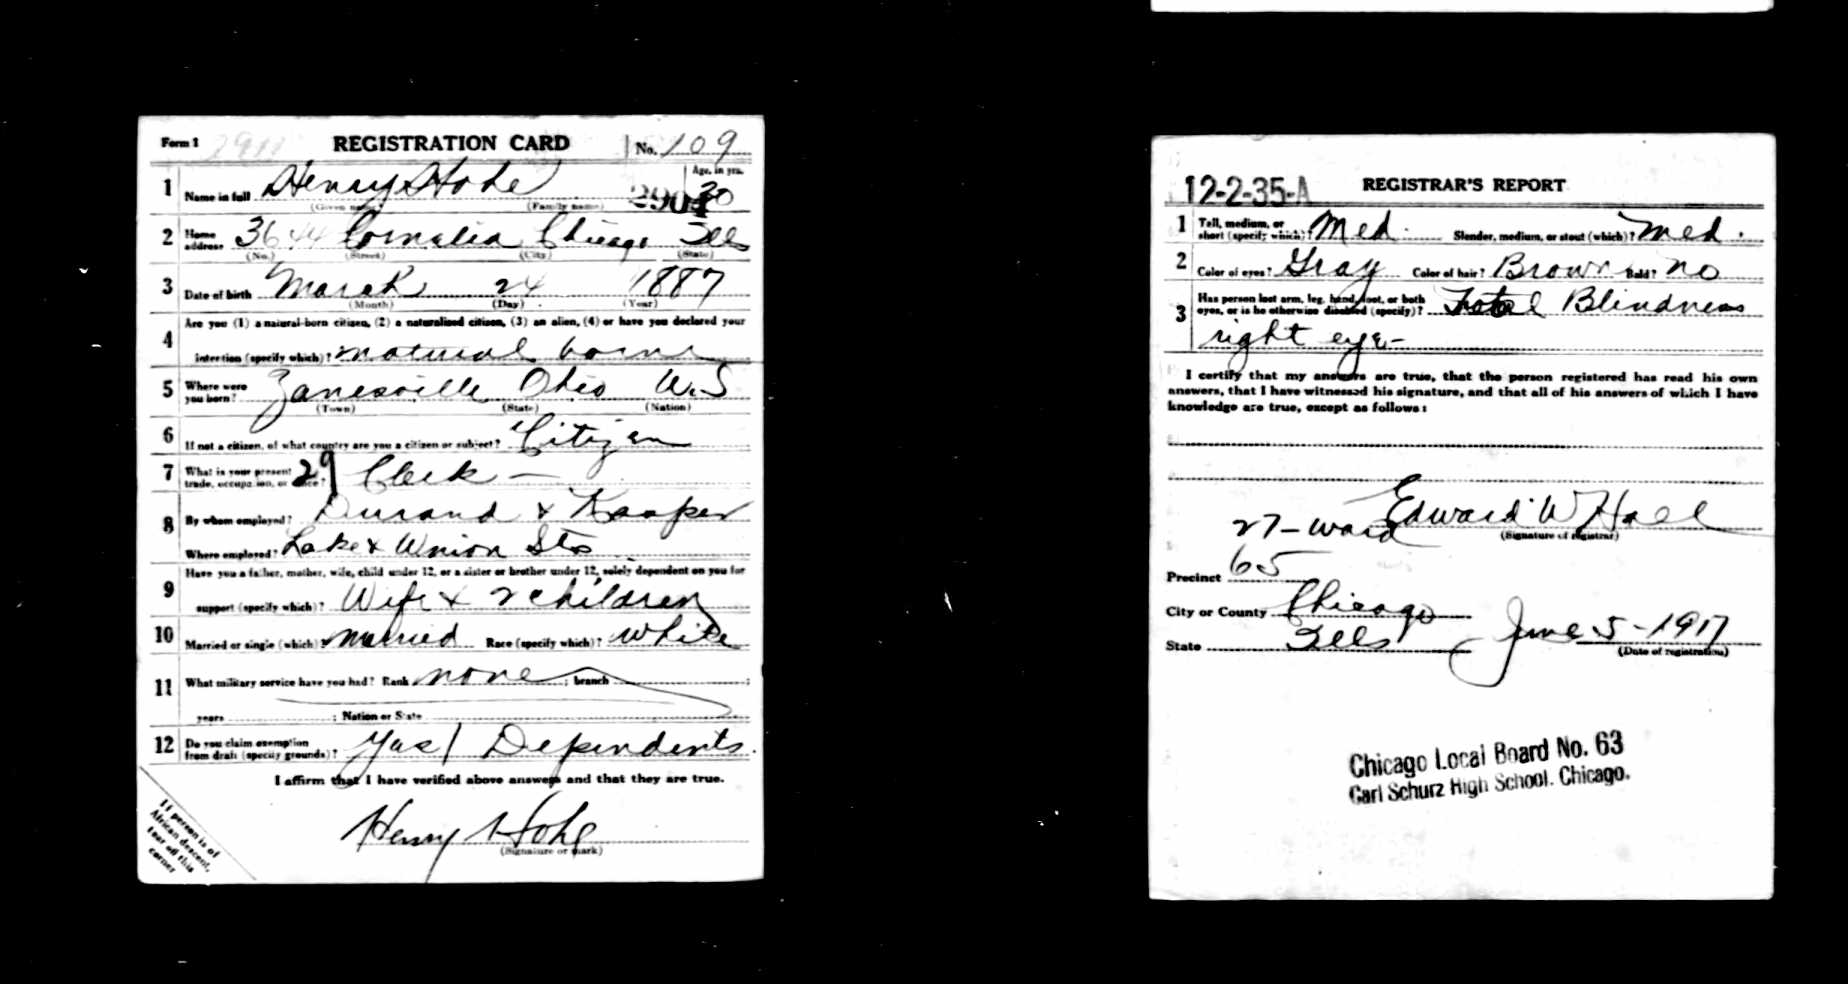 Form 1 2911 REGISTRATION CARD No. 109
Age, in yrs.
1 Name in full Henry Hohe 30
(Given name) (Family name) 2904
2 Home address 3644 Cornelia Chicago Ills
(No.) (Street) (City) (State)
3 Date of birth March 24 1887
(Month) (Day) (Year)
Are you (1) a natural-born citizen, (2) a naturalized citizen, (3) an alien, (4) or have you declared your
4 intention (specify which)? natural born
5 Where were you born? Zanesville Ohio U.S
(Town) (State) (Nation)
6 If not a citizen, of what country are you a citizen or subject? Citizen
7 What is your present trade, occupation, or office? 29 Clerk —
8 By whom employed? Durand & Kasper
Where employed? Lake & Union Sts
Have you a father, mother, wife, child under 12, or a sister or brother under 12, solely dependent on you for
9 support (specify which)? Wife & 2 children
10 Married or single (which)? Married Race (specify which)? White
11 What military service have you had? Rank none ; branch ;
years ; Nation or State
12 Do you claim exemption from draft (specify grounds)? Yes | Dependents.
I affirm that I have verified above answers and that they are true.
Henry Hohe
(Signature or mark)
If person is of
African descent,
tear off this
corner
12-2-35-A REGISTRAR'S REPORT
1 Tall, medium, or short (specify which)? Med. Slender, medium, or stout (which)? Med.
2 Color of eyes? Gray Color of hair? Brown Bald? No
3 Has person lost arm, leg, hand, foot, or both eyes, or is he otherwise disabled (specify)? Total Blindness
right eye-
I certify that my answers are true, that the person registered has read his own
answers, that I have witnessed his signature, and that all of his answers of which I have
knowledge are true, except as follows:
Edward W Hall
27-ward (Signature of registrar)
Precinct 65
City or County Chicago
State Ills June 5-1917
(Date of registration)
Chicago Local Board No. 63
Carl Schurz High School. Chicago.